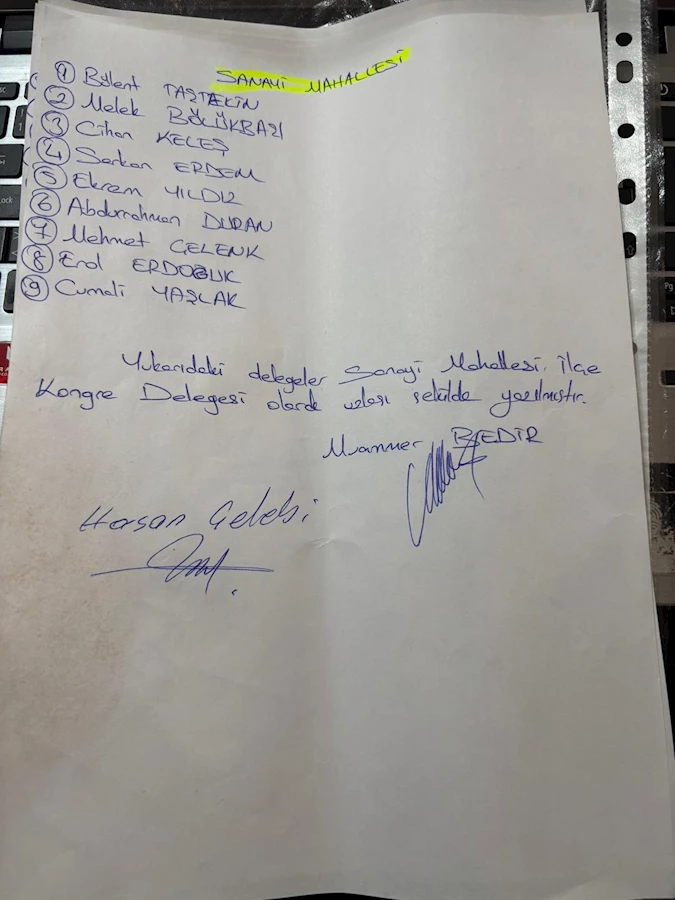 SANAYİ MAHALLESİ
1 Bülent TAŞTEKİN
2 Melek BÖLÜKBAŞI
3 Cihan KELEŞ
4 Serkan ERDEM
5 Ekrem YILDIZ
6 Abdurrahman DURAN
7 Mehmet GELENK
8 Erol ERDOĞUK
9 Cumali YAŞLAK
Yukarıdaki delegeler Sanayi Mahallesi İlçe
Kongre Delegesi olarak uzlaşı şekilde yazılmıştır.
Muammer BEDİR
Hasan Çelebi